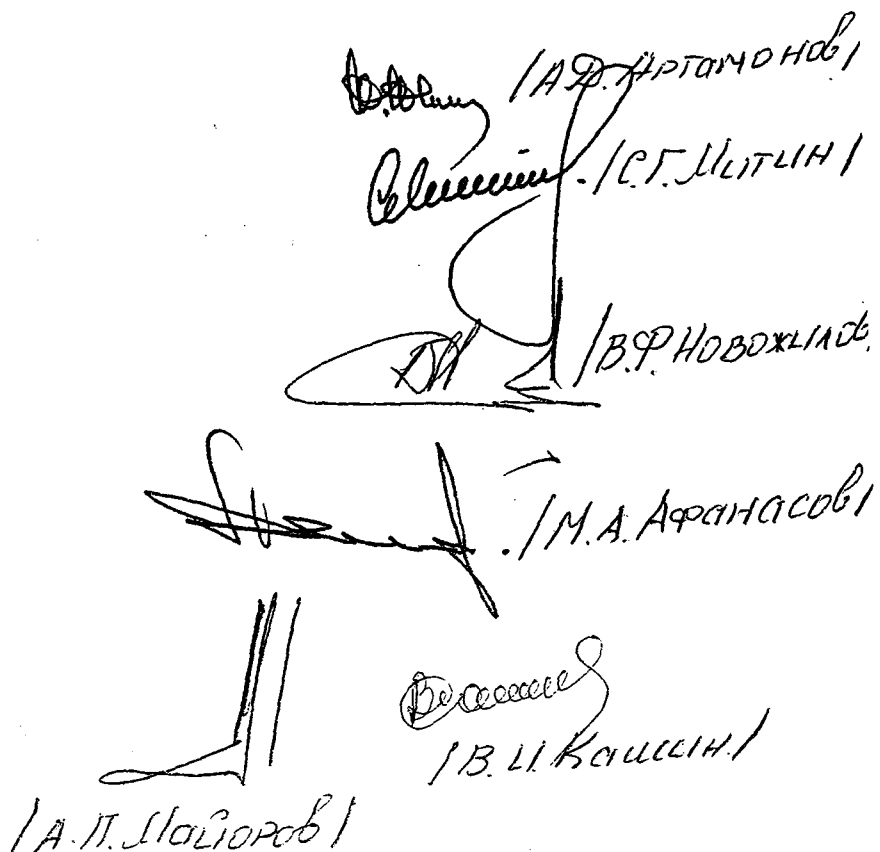 /А.Д. Артамонов/
/С.Г. Митин/
/В.Ф. Новожилов
/М.А. Афанасов/
/В.И. Кашин./
/А.П. Майоров/